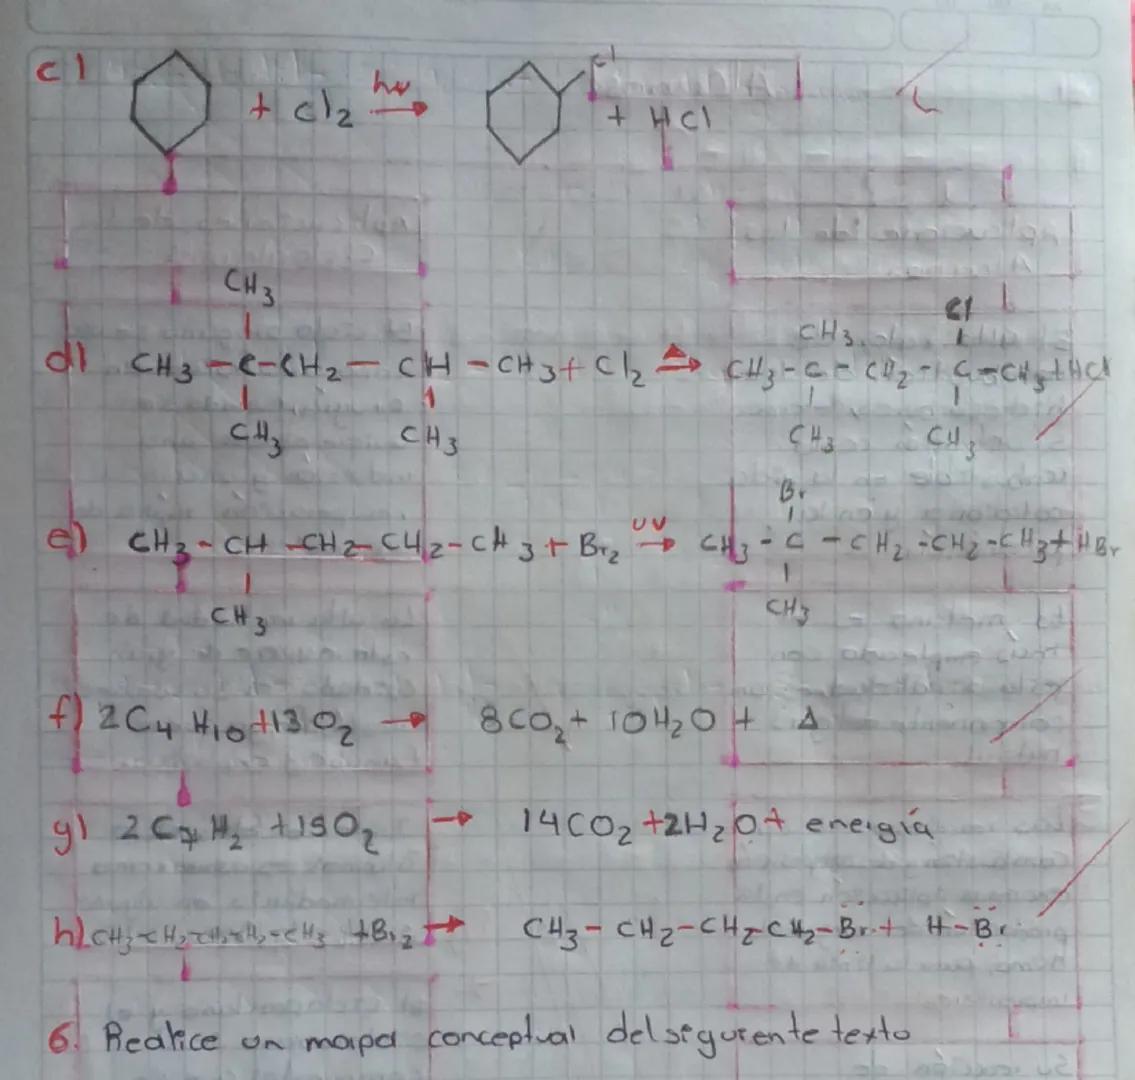 c) + Cl2 hν → Cl + HCl
CH3 CH3 Cl
d) CH3 - C - CH2 - CH - CH3 + Cl2 Δ → CH3 - C - CH2 - C - CH3 + HCl
CH3 CH3 CH3 CH3
Br
e) CH3 - CH - CH2 - CH2 - CH3 + Br2 UV → CH3 - C - CH2 - CH2 - CH3 + HBr
CH3 CH3
f) 2C4 H10 + 13 O2 → 8CO2 + 10H2O + Δ
g) 2 C7 H2 + 15O2 → 14CO2 + 2H2O + energía
h) CH3-CH2-CH2-CH2-CH3 + Br2 → CH3 - CH2 - CH2 - CH2 - Br + H - Br
6. Realice un mapa conceptual del siguiente texto